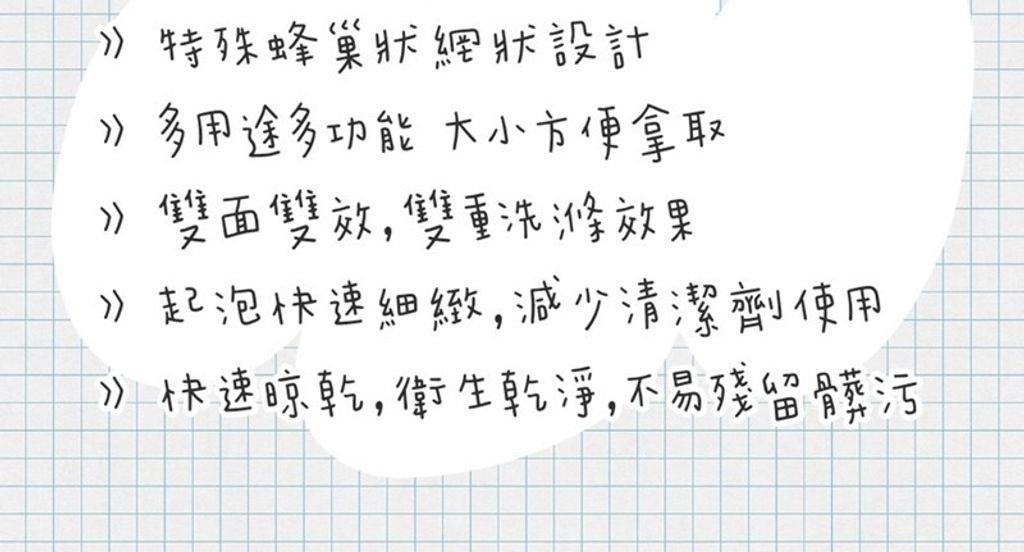 》 特殊蜂巢狀網狀設計
》 多用途多功能 大小方便拿取
》 雙面雙效,雙重洗滌效果
》 起泡快速細緻,減少清潔劑使用
》 快速晾乾,衛生乾淨,不易殘留髒污